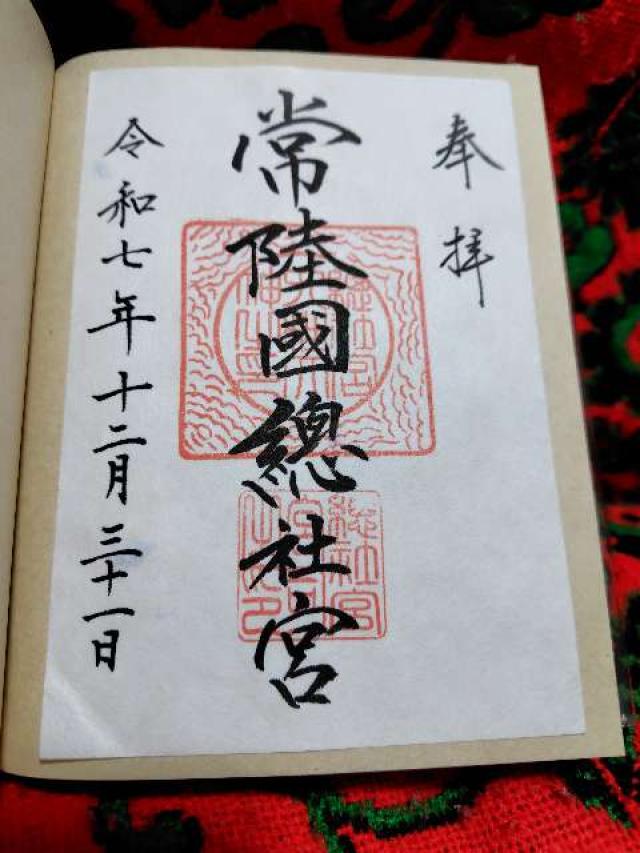 奉拝
常陸國總社宮
令和七年十二月三十一日